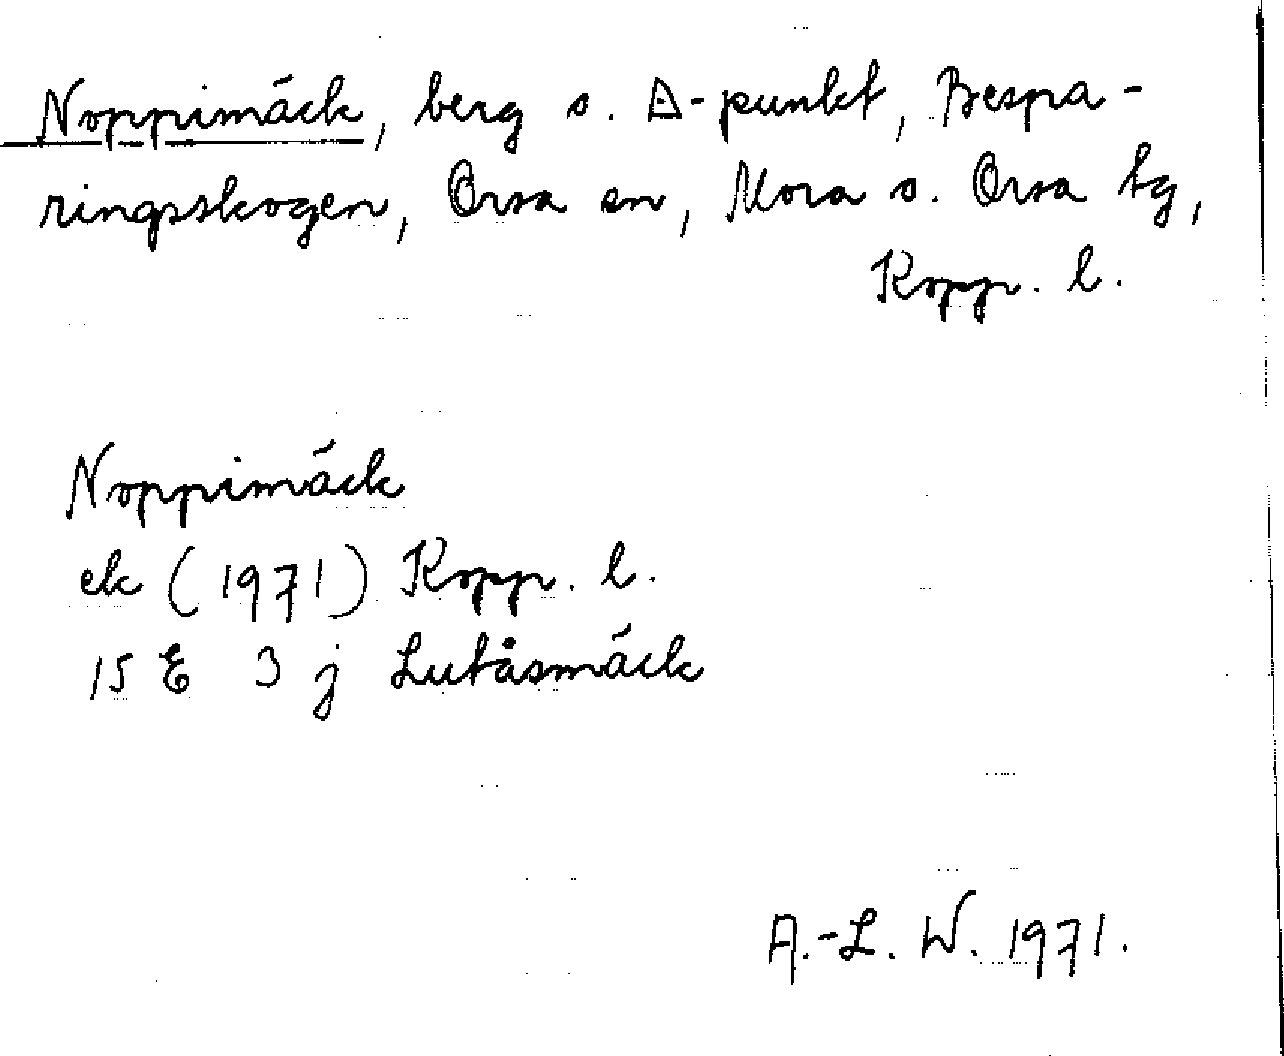 Noppimäck, berg o. △-punkt, Bespa-
ringsskogen, Orsa sn, Mora o. Orsa tg,
Kopp. l.
Noppimäck
ek (1971) Kopp. l.
15 E 3 j Lutåsmäck
A.-L. W. 1971.